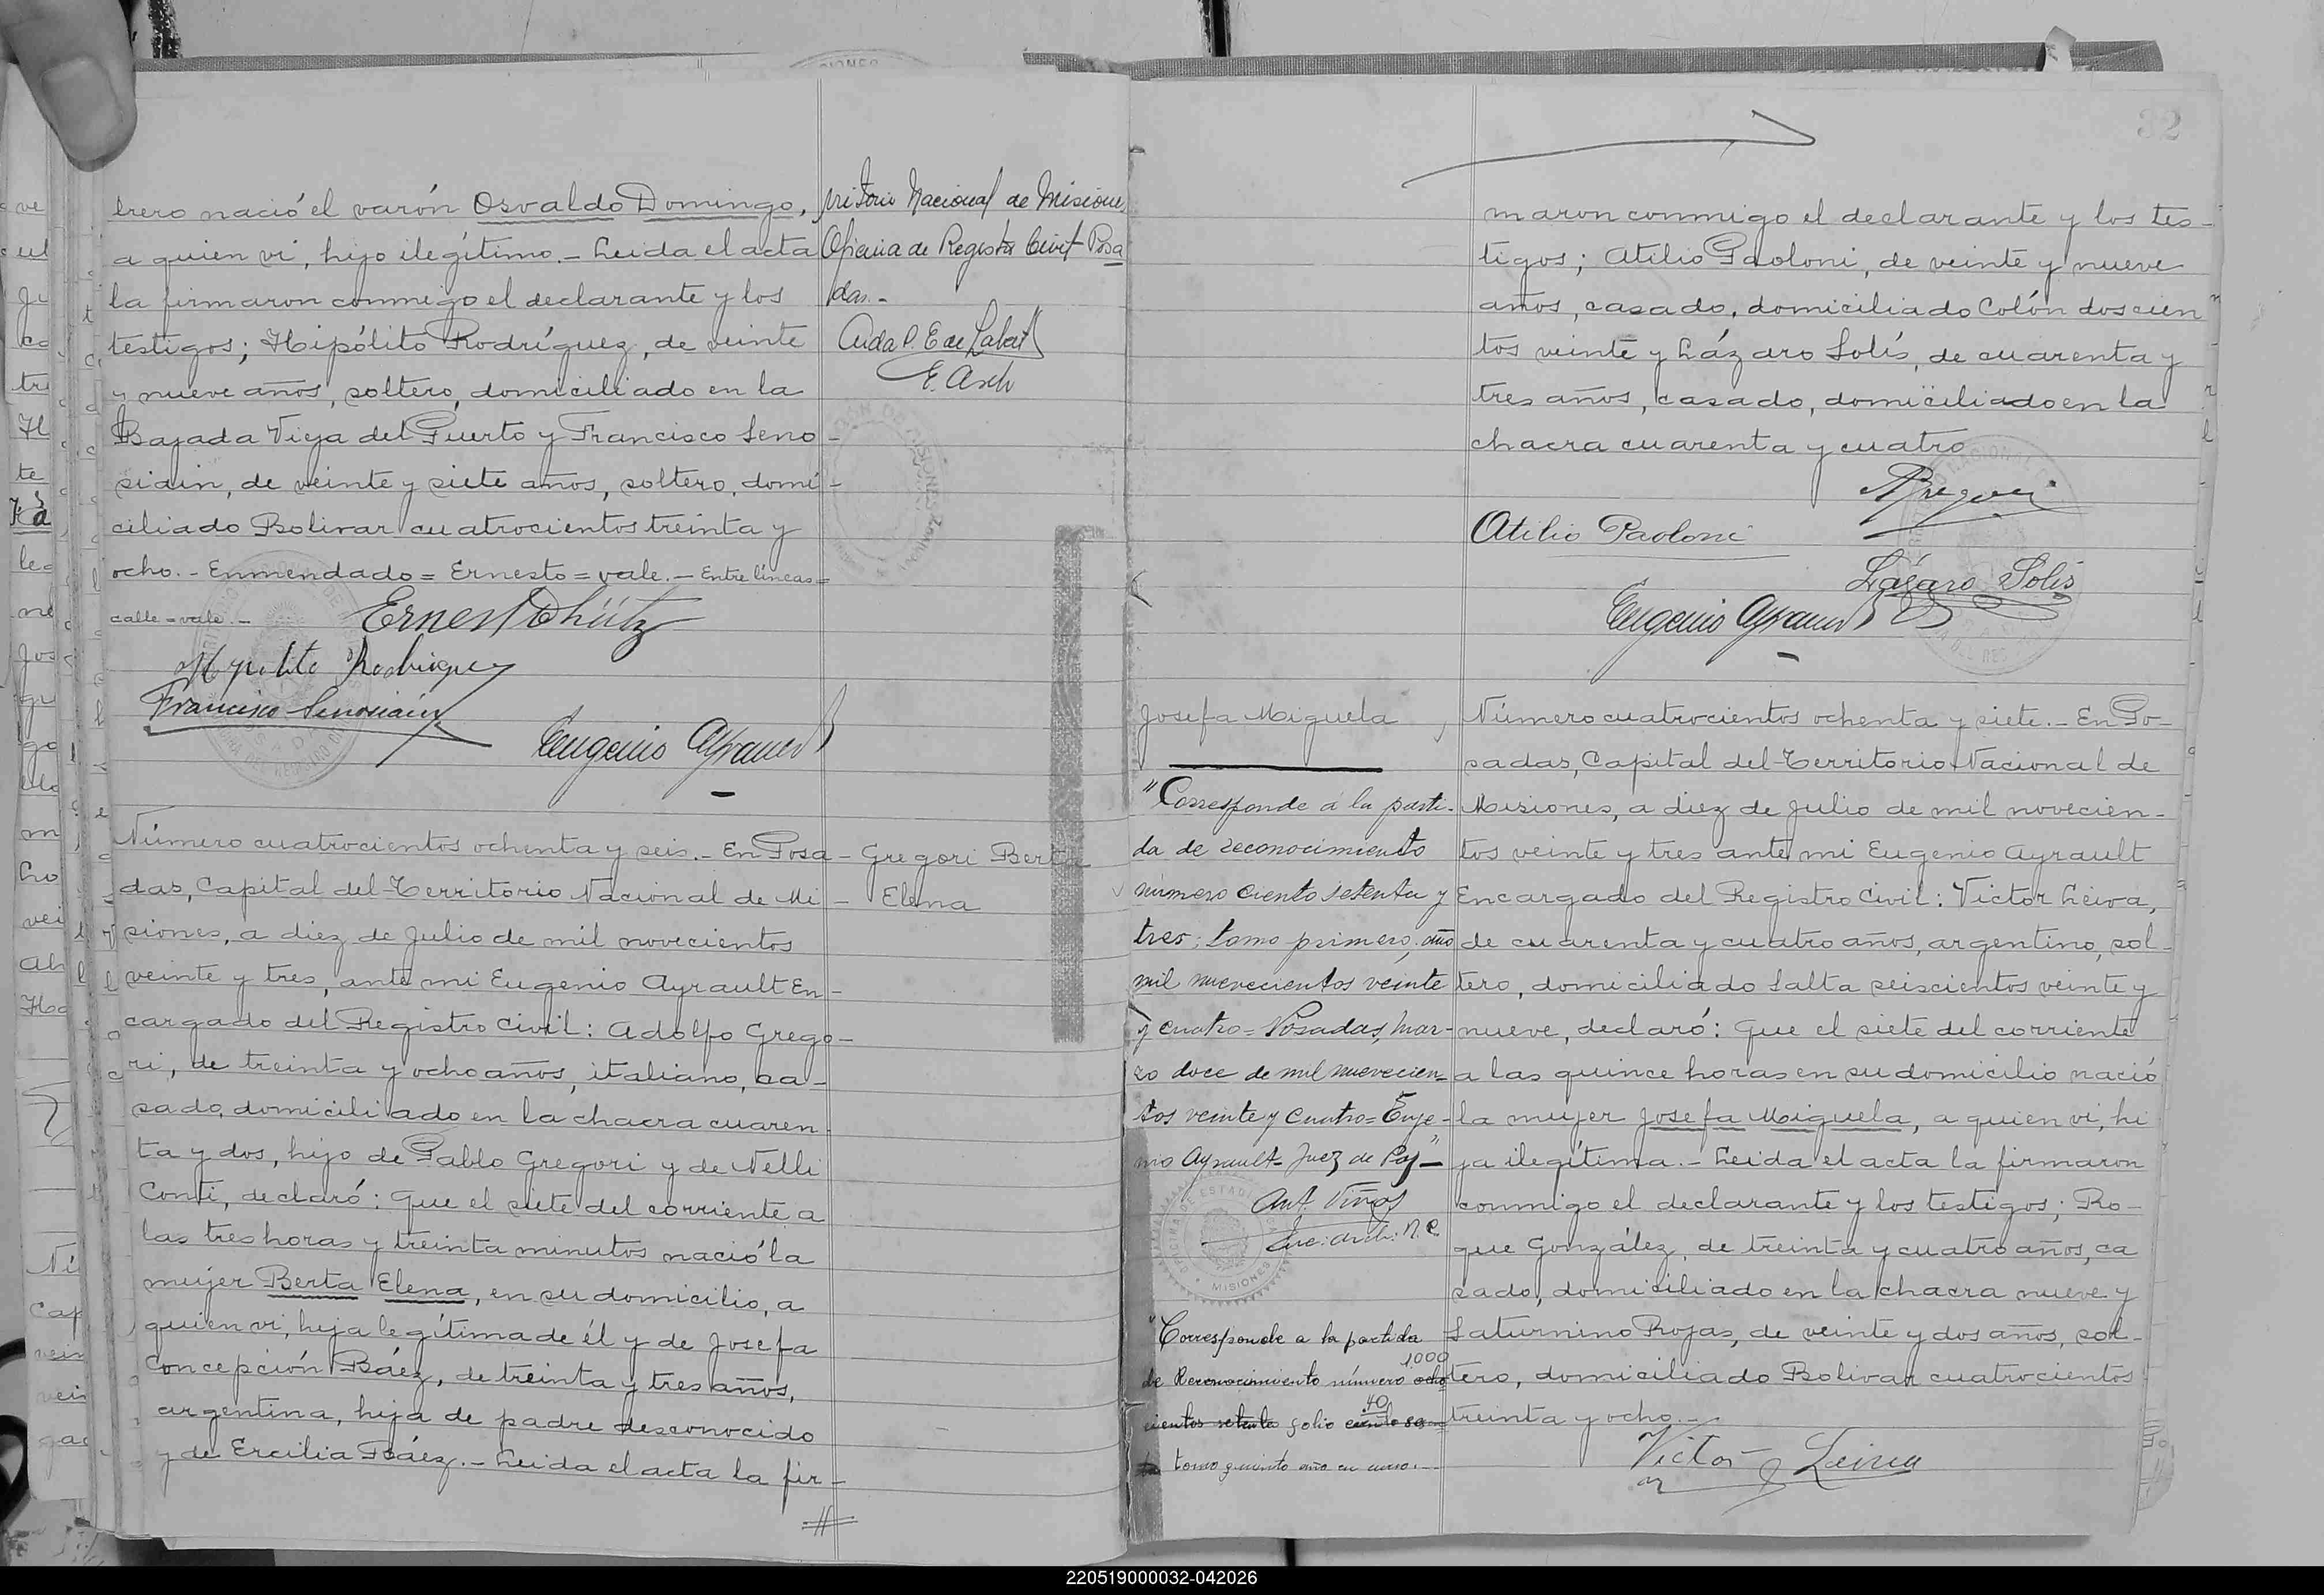 trero nació el varón Osvaldo Domingo,
a quien vi, hijo ilegítimo.- Leida el acta
la firmaron conmigo el declarante y los
testigos; Hipólito Rodríguez, de veinte
y nueve años, soltero, domiciliado en la
Bajada Vieja del Puerto y Francisco Seno-
siain, de veinte y siete años, soltero, domi-
ciliado Bolivar cuatrocientos treinta y
ocho.- Enmendado = Ernesto = vale.- Entre líneas =
calle = vale.-
Hypolito Rodriguez
Francisco Senosiain
Eugenio Ayrault
rritorio Nacional de Misiones
Oficina de Registro Civil Posa
das.-
E. Arch
Número cuatrocientos ochenta y seis.- En Posa-
das, Capital del Territorio Nacional de Mi-
siones, a diez de Julio de mil novecientos
veinte y tres, ante mi Eugenio Ayrault En-
cargado del Registro Civil: Adolfo Grego-
ri, de treinta y ocho años, italiano, ca-
sado, domiciliado en la chacra cuaren
ta y dos, hijo de Pablo Gregori y de Nelli
Conti, declaró: Que el siete del corriente a
las tres horas y treinta minutos nació la
mujer Berta Elena, en su domicilio, a
quien vi, hija legítima de él y de Josefa
Concepción Báez, de treinta y tres años,
argentina, hija de padre desconocido
y de Ercilia Báez.- Leida el acta la fir-
Gregori Berta
Elena
32
maron conmigo el declarante y los tes-
tigos; Atilio Paoloni, de veinte y nueve
años, casado, domiciliado Colón doscien
tos veinte y Lázaro Solís, de cuarenta y
tres años, casado, domiciliado en la
chacra cuarenta y cuatro
Atilio Paoloni
Lázaro Solis
Eugenio Ayrault
Josefa Miguela
"Corresponde á la parti-
da de reconocimiento
número ciento setenta y
tres; tomo primero, año
mil nuevecientos veinte
y cuatro = Posadas, Mar-
zo doce de mil nuevecien-
tos veinte y cuatro = Euge-
nio Ayrault - Juez de Paz -
OFICINA DE ESTADI
MISIONES
"Corresponde a la partida
1000
de Reconocimiento número ocho
40
cientos setenta folio ciento se
tomo quinto año en curso.-
Número cuatrocientos ochenta y siete.- En Po-
sadas, Capital del Territorio Nacional de
Misiones, a diez de Julio de mil novecien-
tos veinte y tres ante mi Eugenio Ayrault
Encargado del Registro Civil: Victor Leiva,
de cuarenta y cuatro años, argentino, sol-
tero, domiciliado Salta seiscientos veinte y
nueve, declaró: Que el siete del corriente
a las quince horas en su domicilio nació
la mujer Josefa Miguela, a quien vi, hi
ja ilegítima.- Leida el acta la firmaron
conmigo el declarante y los testigos; Ro-
que González, de treinta y cuatro años, ca
sado, domiciliado en la chacra nueve y
Saturnino Rojas, de veinte y dos años, sol-
tero, domiciliado Bolivar cuatrocientos
treinta y ocho.-
Victor Leiva
220519000032-042026